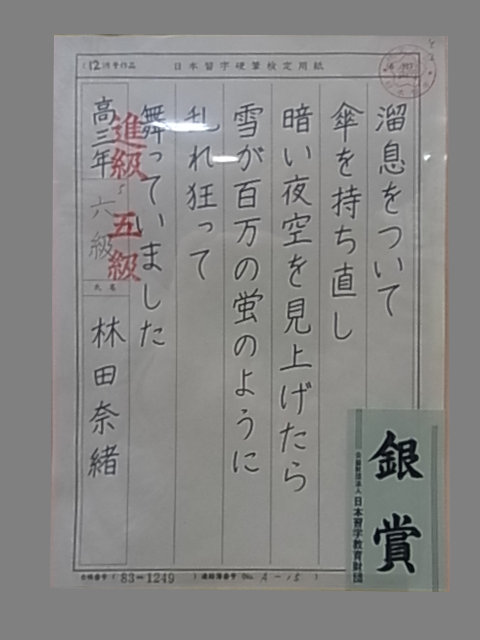 (12月号作品
日本習字硬筆検定用紙
溜息をついて
傘を持ち直し
暗い夜空を見上げたら
雪が百万の蛍のように
乱れ狂って
舞っていました
高三年
六級
進級 五級
氏名
林田奈緒
合格番号(83-1249)連絡簿番号(No. A-15)
銀賞
公益財団法人
日本習字教育財団